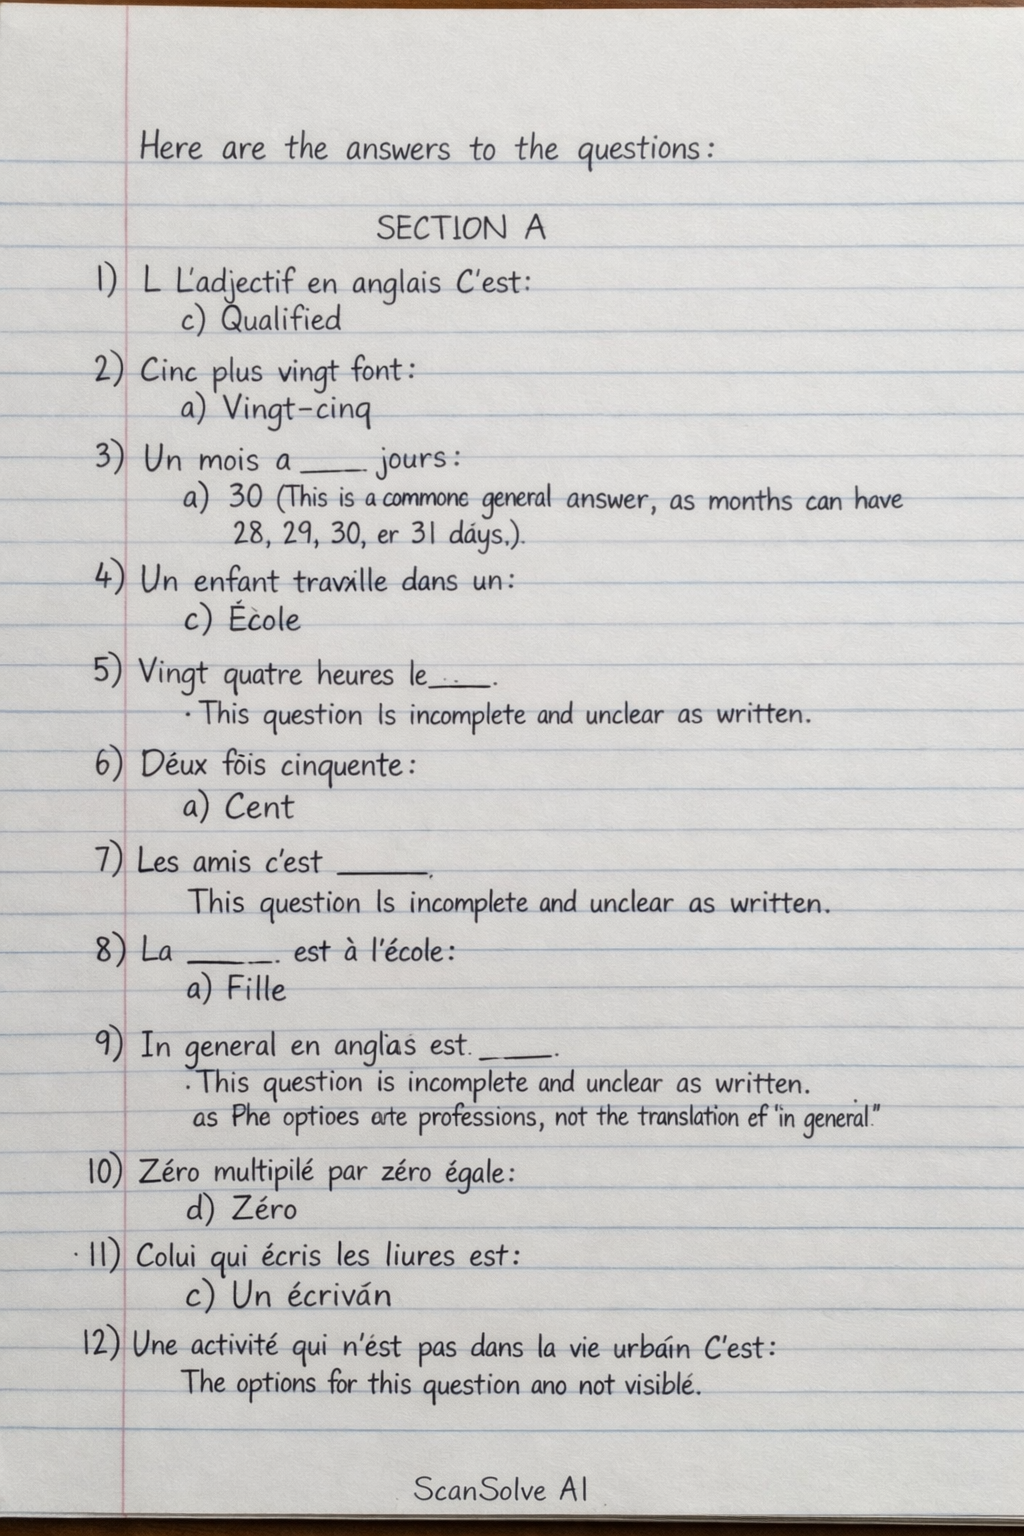 Here are the answers to the questions:
SECTION A
1) L L'adjectif en anglais C'est:
c) Qualified
2) Cinc plus vingt font:
a) Vingt-cinq
3) Un mois a ____ jours:
a) 30 (This is a commone general answer, as months can have
28, 29, 30, er 31 dáys.).
4) Un enfant travaille dans un:
c) École
5) Vingt quatre heures le____.
· This question Is incomplete and unclear as written.
6) Déux fōis cinquente:
a) Cent
7) Les amis c'est _____.
This question Is incomplete and unclear as written.
8) La _____. est à l'école:
a) Fille
9) In general en anglais est. ____.
· This question is incomplete and unclear as written.
as Phe optioes arte professions, not the translation ef "in general."
10) Zéro multipilé par zéro égale:
d) Zéro
· 11) Colui qui écris les liures est:
c) Un écriván
12) Une activité qui n'ést pas dans la vie urbáin C'est:
The options for this question ano not visiblé.
ScanSolve AI